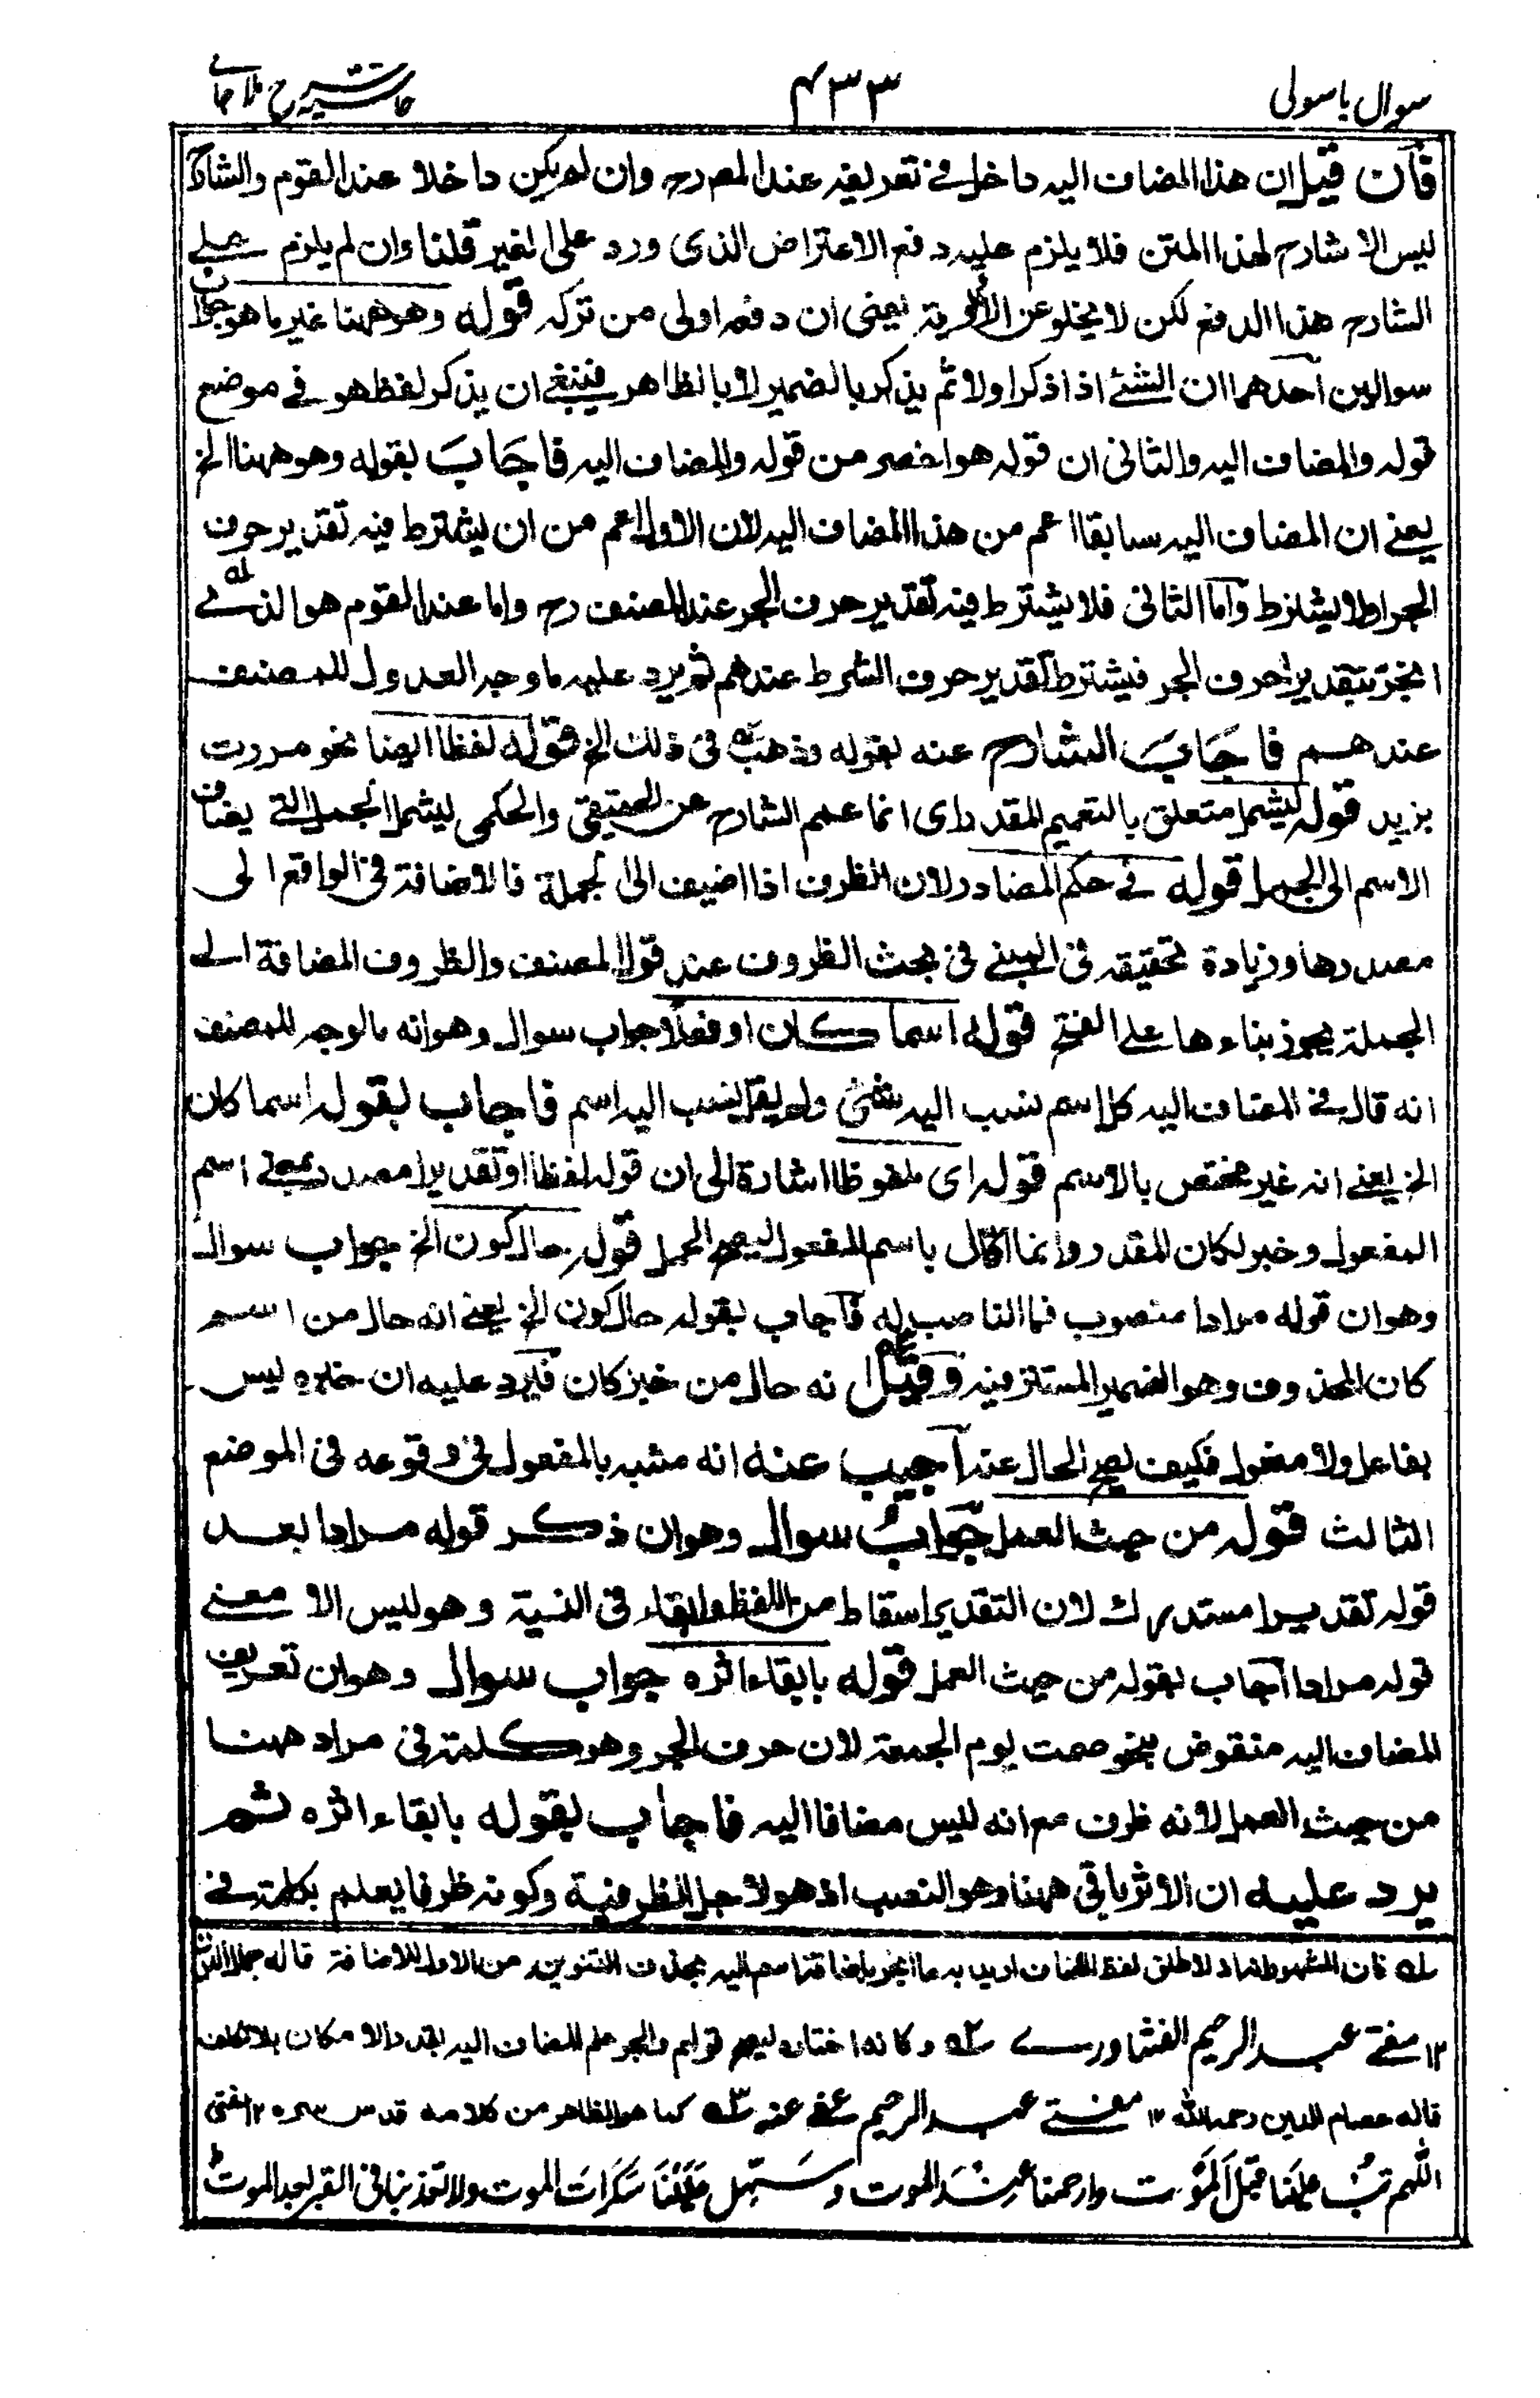 سوال باسولی ۴۳۳ حاشیہ شرح ملا جامے
فان قيل ان هذا المضاف اليه داخل في تعريفه عند المصرح وان لم يكن داخلا عند القوم والشارح
ليس الا شارح لهذا المتن فلا يلزم عليه دفع الاعتراض الذى ورد على الغير قلنا وان لم يلزم على
الشارح هذا الدفع لكن لا يخلو عن الاولوية يعنى ان دفعه اولى من تركه قوله وهو ههنا غير ما هو جواب
سوالين احدهما ان الشئ اذا ذكر اولا ثم يذكر بالضمير لا بالظاهر فينبغى ان يذكر لفظ هو في موضع
قوله والمضاف اليه والثانى ان قوله هو اخصر من قوله والمضاف اليه فاجاب بقوله وهو ههنا الخ
يعنے ان المضاف اليه سابقا اعم من هذا المضاف اليه لان الاول اعم من ان يشترط فيه تقدير حرف
الجر اولا يشترط واما الثانى فلا يشترط فيه تقدير حرف الجر عند المصنف رح واما عند القوم هو الذى
انجر بتقدير حرف الجر فيشترط تقدير حرف الشرط عندهم ثم يرد عليه ما وجه العدول للمصنف
عندهم فاجاب الشارح عنه بقوله وذهب فى ذلك الخ قوله لفظا ايضا نحو مررت
بزيد قوله ليشمل متعلق بالتعميم المقدر اى انما عمم الشارح من الحقيقى والحكمى ليشمل الجمل التے يضاف
الاسم الى الجمل قوله في حكم المصادر لان الظرف اذا اضيف الى الجملة فالاضافة فى الواقع الى
مصدرها وزيادة تحقيقه فى المبنے فى بحث الظروف عند قول المصنف والظروف المضافة الى
الجملة يجوز بناءها على الفتح قوله اسما كان او فعلا جواب سوال وهو انه ما الوجه للمصنف
انه قال في المضاف اليه كل اسم نسب اليه شئ ولم يقل نسب اليه اسم فاجاب بقوله اسما كان
الخ يعنے انه غير مختص بالاسم قوله اى ملفوظا اشارة الى ان قوله لفظا او تقديرا مصدر بمعنے اسم
المفعول وخبر لكان المقدر وانما قال باسم المفعول ليصح الحمل قوله حال كون الخ جواب سوال
وهو ان قوله مرادا منصوب فما الناصب له فاجاب بقوله حال كون الخ يعنے انه حال من اسم
كان المحذوف وهو الضمير المستتر فيه وقيل انه حال من خبر كان فيرد عليه ان خبره ليس
بفاعل ولا مفعول فكيف يصح الحال عنه اجيب عنه انه مشبه بالمفعول فى وقوعه فى الموضع
الثالث قوله من حيث العمل جواب سوال وهو ان ذكر قوله مرادا بعد
قوله تقديرا مستدرك لان التقدير اسقاط من اللفظ وابقاء فى النية وهو ليس الا معنے
قوله مرادا اجاب بقوله من حيث العمل قوله بابقاء اثره جواب سوال وهو ان تعريف
المضاف اليه منقوض بنحو صمت يوم الجمعة لان حرف الجر وهو كلمة فى مراد ههنا
من حيث العمل لانه ظرف مع انه ليس مضافا اليه فاجاب بقوله بابقاء اثره ثم
يرد عليه ان الاثر باقى ههنا وهو النصب اذ هو لاجل الظرفية وكونه ظرفا يعلم بكلمة في
لہ فان المشهور لاطلق لفظ المضاف اريد به ما انجر باضافة اسم اليه بحذف التنوين من الاول للاضافة قاله جمال الدين
۱۲ مفتے عبد الرحيم الفشاورے ۲ہ وكانه اختاره ليصح قولهم والجر علم المضاف اليه بقدر الامكان بلا تكلف
قاله عصام الدين رحمه الله ۱۲ مفتے عبد الرحيم عفے عنه ۳ہ كما هو الظاهر من كلامه قدس سره ۱۲ مفتى
اللهم تب علينا قبل الموت وارحمنا عند الموت وسهل علينا سكرات الموت ولا تعذبنا فى القبر بعد الموت